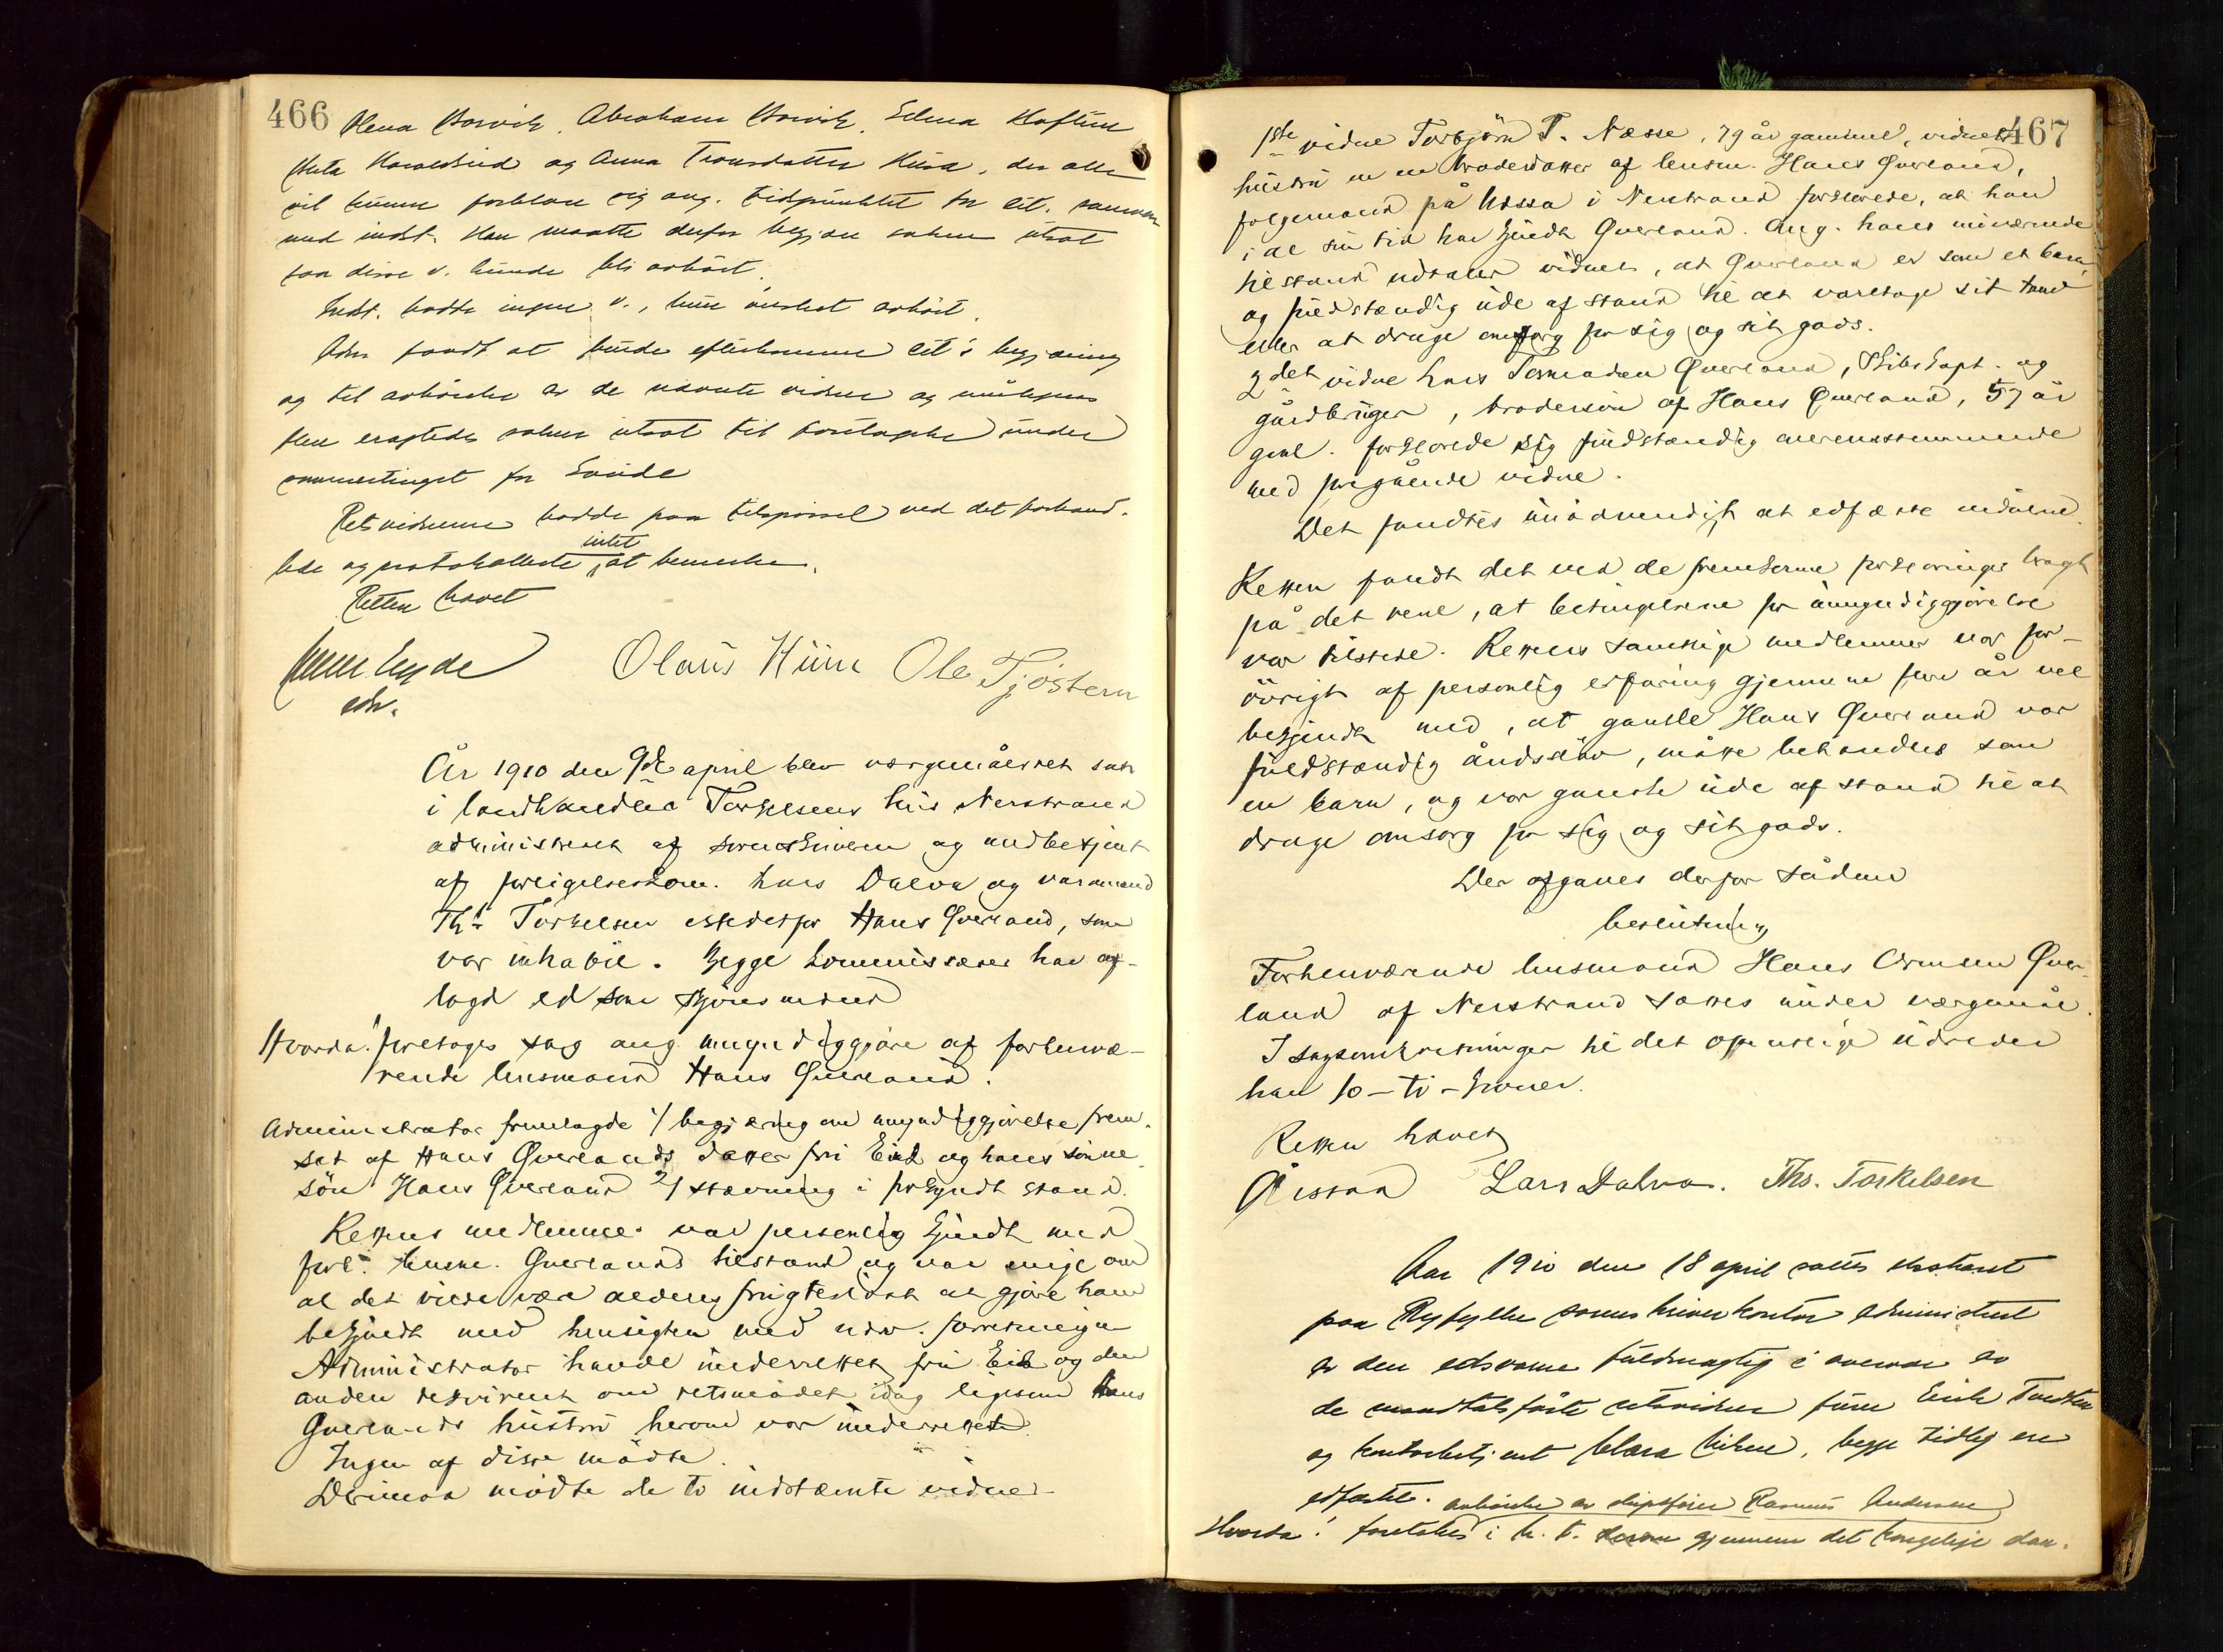 466
Olena Borvik, Abraham Borvik, Selina Haftun
Berta Haraldseid og Anna Tronsdatter Husa, der alle
vil kunne forklare sig ang. tidspunktet for cit. samvær
med indst. Han maatte derfor begjære saken utsat
saa disse v. kunde bli avhørt.
Indst. hadde ingen v., hun ønsket avhørt.
Adm fandt at burde efterkomme cit's begjæring
og til avhørelse av de nævnte vidner og muligens
flere eragtedes saken utsat til foretagelse under
sommertinget for Saude
Retsvidnerne hadde paa tilspørsel ved det forhand-
lede og protokollerte intet at bemerke.
Retten hævet
edsv.
Olaus Hüm Ole Tjøstem
År 1910 den 9de april blev værgemålsret sat
i landhandler Torkelsens hus Nerstrand
administreret af sorenskriveren og medbetjent
af forligelseskom. Lars Dalva og varamand
Ths Torkelsen istedetfor Hans Qverland, som
var inhabil. Begge kommissærer har af-
lagd ed som skjønsmænd
Hvorda! foretoges sag ang umyndiggjøre af forhenvæ-
rende lensmand Hans Qverland.
Administrator fremlagde 1/ begjæring om umyndiggjørelse frem-
sat af Hans Qverlands datter fru Eik og hans sønne-
søn Hans Qverland 2/ stævning i forkyndt stand.
Rettens medlemmer var personlig kjendt med
forh. lensm. Qverlands tilstand og var enige om
at det vilde være aldeles frugtesløst at gjøre ham
bekjendt med hensigten med nærv. forretning
Administrator havde underrettet fru Eik og den
anden rekvirent om retsmødet idag ligesom Hans
Qverlands hustru herom var underrettet.
Ingen af disse mødte.
Derimod mødte de to indstevnte vidner
467
1ste vidne Torbjørn T. Næsse, 79 år gammel, vidnets
hustru er en broderdatter af lensm. Hans Qverland,
folgemand på Næssa i Nerstrand forklarede, at han
i al sin tid har kjendt Qverland. Ang. hans nuværende
tilstand udtaler vidnet, at Qverland er som et barn
og fuldstændig ude af stand til at varetage sit tarv
eller at drage omsorg for sig og sit gods.
2det vidne Lars Tormodsen Qverland, Skibskapt. og
gårdbruger, brodersøn af Hans Qverland, 57 år
gml. forklarede sig fuldstændig overensstemmende
med foregående vidne.
Det fandtes unødvendigt at edfæste vidnerne.
Retten fandt det ved de fremkomne forklaringer bragt
på det rene, at betingelserne for umyndiggjørelse
var tilstede. Rettens samtlige medlemmer var for-
øvrigt af personlig erfaring gjennem flere år vel
bekjendt med, at gamle Hans Qverland var
fuldstændig åndssløv, måtte behandles som
en barn, og var ganske ude af stand til at
drage omsorg for sig og sit gods.
Der afgaves derfor sådan
beslutning
Forhenværende lensmand Hans Ormsen Qver-
land af Nerstrand sættes under værgemål.
I sagsomkostninger til det offentlige udreder
han 10 – ti – kroner.
Retten hævet
Lars Dalva. Ths. Torkelsen
Aar 1910 den 18 april sattes ekstraret
paa Ryfylke sorenskriverkontor administreret
av den edsvorne fuldmægtig i overvær av
de mandtalsførte retsvidner frue Eirik
og kontorbetjent Klara, begge tidligere
edfæstet. avhørelse av skipsfører Rasmus Andersen
Hvorda! foretokes i h. t. gjennem det kongelige dan.